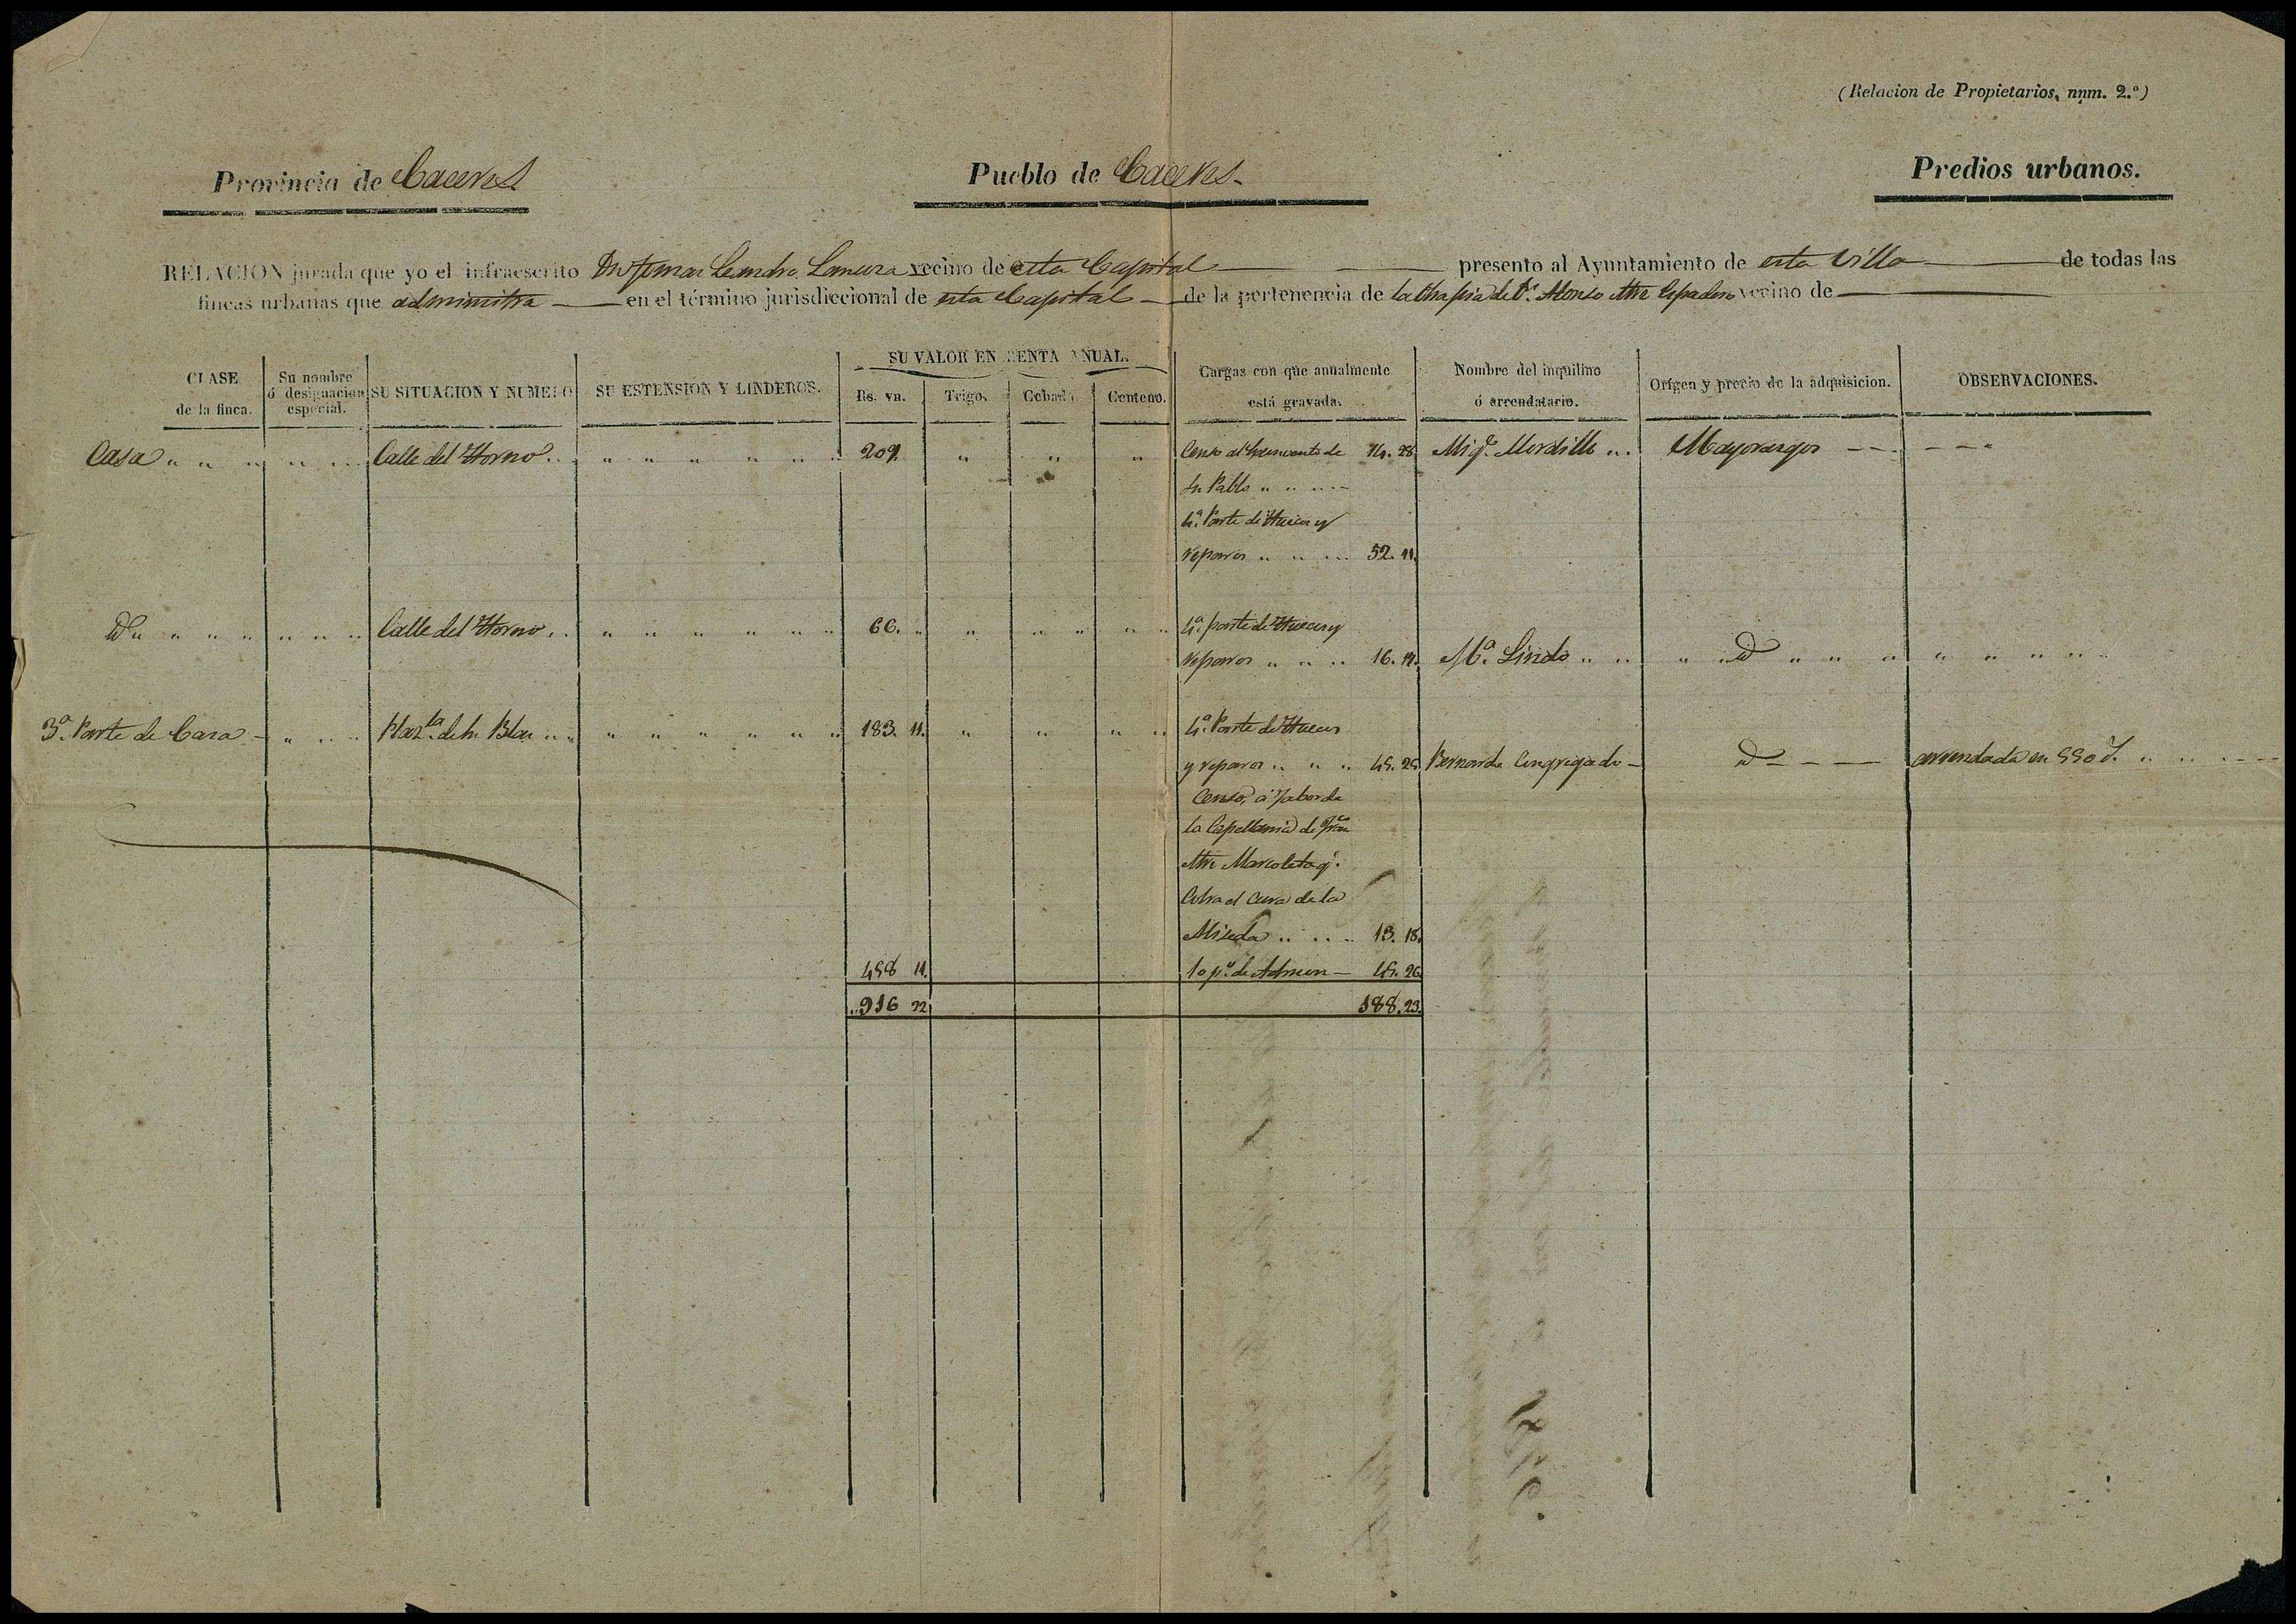 (Relacion de Propietarios, núm. 2.º)
Provincia de Caceres
Pueblo de Caceres
Predios urbanos.
RELACION jurada que yo el infraescrito Leandro vecino de esta Capital presento al Ayuntamiento de esta Villa de todas las
fincas urbanas que administra en el término jurisdiccional de esta Capital de la pertenencia de Dn. Alonso Espadero vecino de
CLASE de la finca.
Su nombre ó designacion especial.
SU SITUACION Y NUMERO
SU ESTENSION Y LINDEROS.
SU VALOR EN RENTA ANUAL.
Rs. vn.
Trigo.
Cebada
Centeno.
Cargas con que anualmente está gravada.
Nombre del inquilino ó arrendatario.
Orígen y precio de la adquisicion.
OBSERVACIONES.
Casa Calle del Horno 209 Censo al Convento de 14. 28 Mayorazgos
Sn Pablo
4ª. Parte de Huecos y
reparos 52. 11.
Id Calle del Horno 66. 4ª. parte de Huecos y
reparos 16. 17. Mª. Lindo id
3ª. Parte de Casa Plazta. de Sn Blas 183. 11. 4ª. Parte de Huecos
y reparos 45. 28 Bernardo Congregado id arrendada en 550 r.
Censo, á fabor de
la Capellania de Franco
Mre Marcoleta q.
Cobra el Cura de la
13. 18.
458 11. 10 p%. de Admon 45. 26
916 22 188. 23.